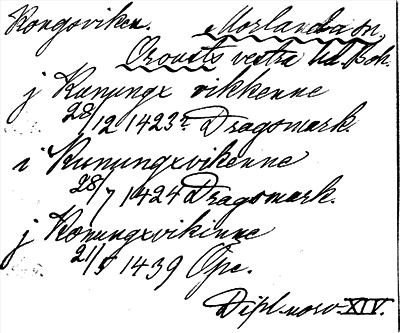 Kongsviken. Morlanda sn,
Orousts vestra hd. Boh.
j Kunungx vikkenne
28/12 1423 Dragsmark.
i Kunungxvikenne
28/7 1424 Dragsmark.
j Konungxvikinne
21/5 1439 Ope.
Dipl. norv. XIV.